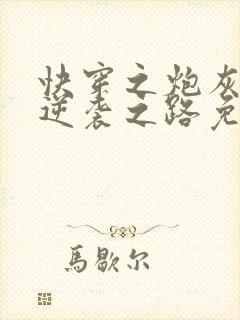 快穿之炮灰
逆袭之路免
馬歇尔